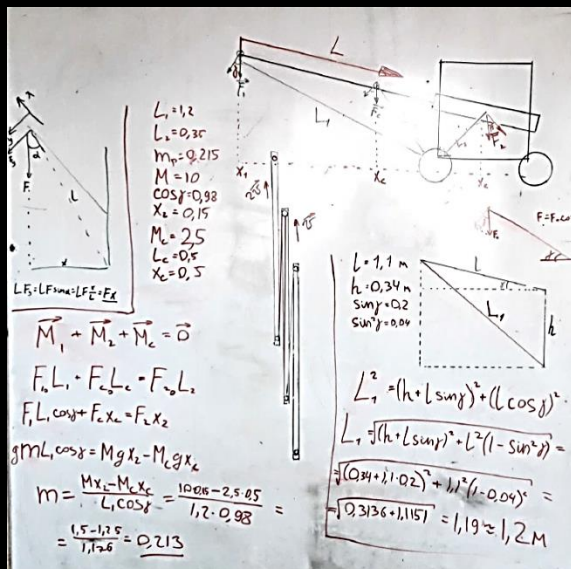 L
F₁
L₁
F_c
F₂
X₁
X_c
F
α
l
x
L₁=1,2
L₂=0,35
m_п=0,215
M=10
cosγ=0,98
X₂=0,15
M_c=2,5
L_c=0,5
X_c=0,5
LF₃=LFsinα=LF x/L=Fx
M⃗₁ + M⃗₂ + M⃗_c = 0⃗
F₁L₁cosγ+F_cX_c=F₂X₂
gmL₁cosγ=MgX₂-M_cgX_c
m= (MX₂-M_cX_c)/(L₁cosγ) = (10·0,15-2,5·0,5)/(1,2·0,98) =
= (1,5-1,25)/1,176 = 0,213
l=1,1 м
h=0,34м
sinγ=0,2
sin²γ=0,04
l
L₁
h
L₁²=(h+lsinγ)²+(lcosγ)²
L₁=√((h+lsinγ)²+l²(1-sin²γ))=
=√((0,34+1,1·0,2)²+1,1²(1-0,04)²) =
=√(0,3136+1,1151) =1,19≈1,2м